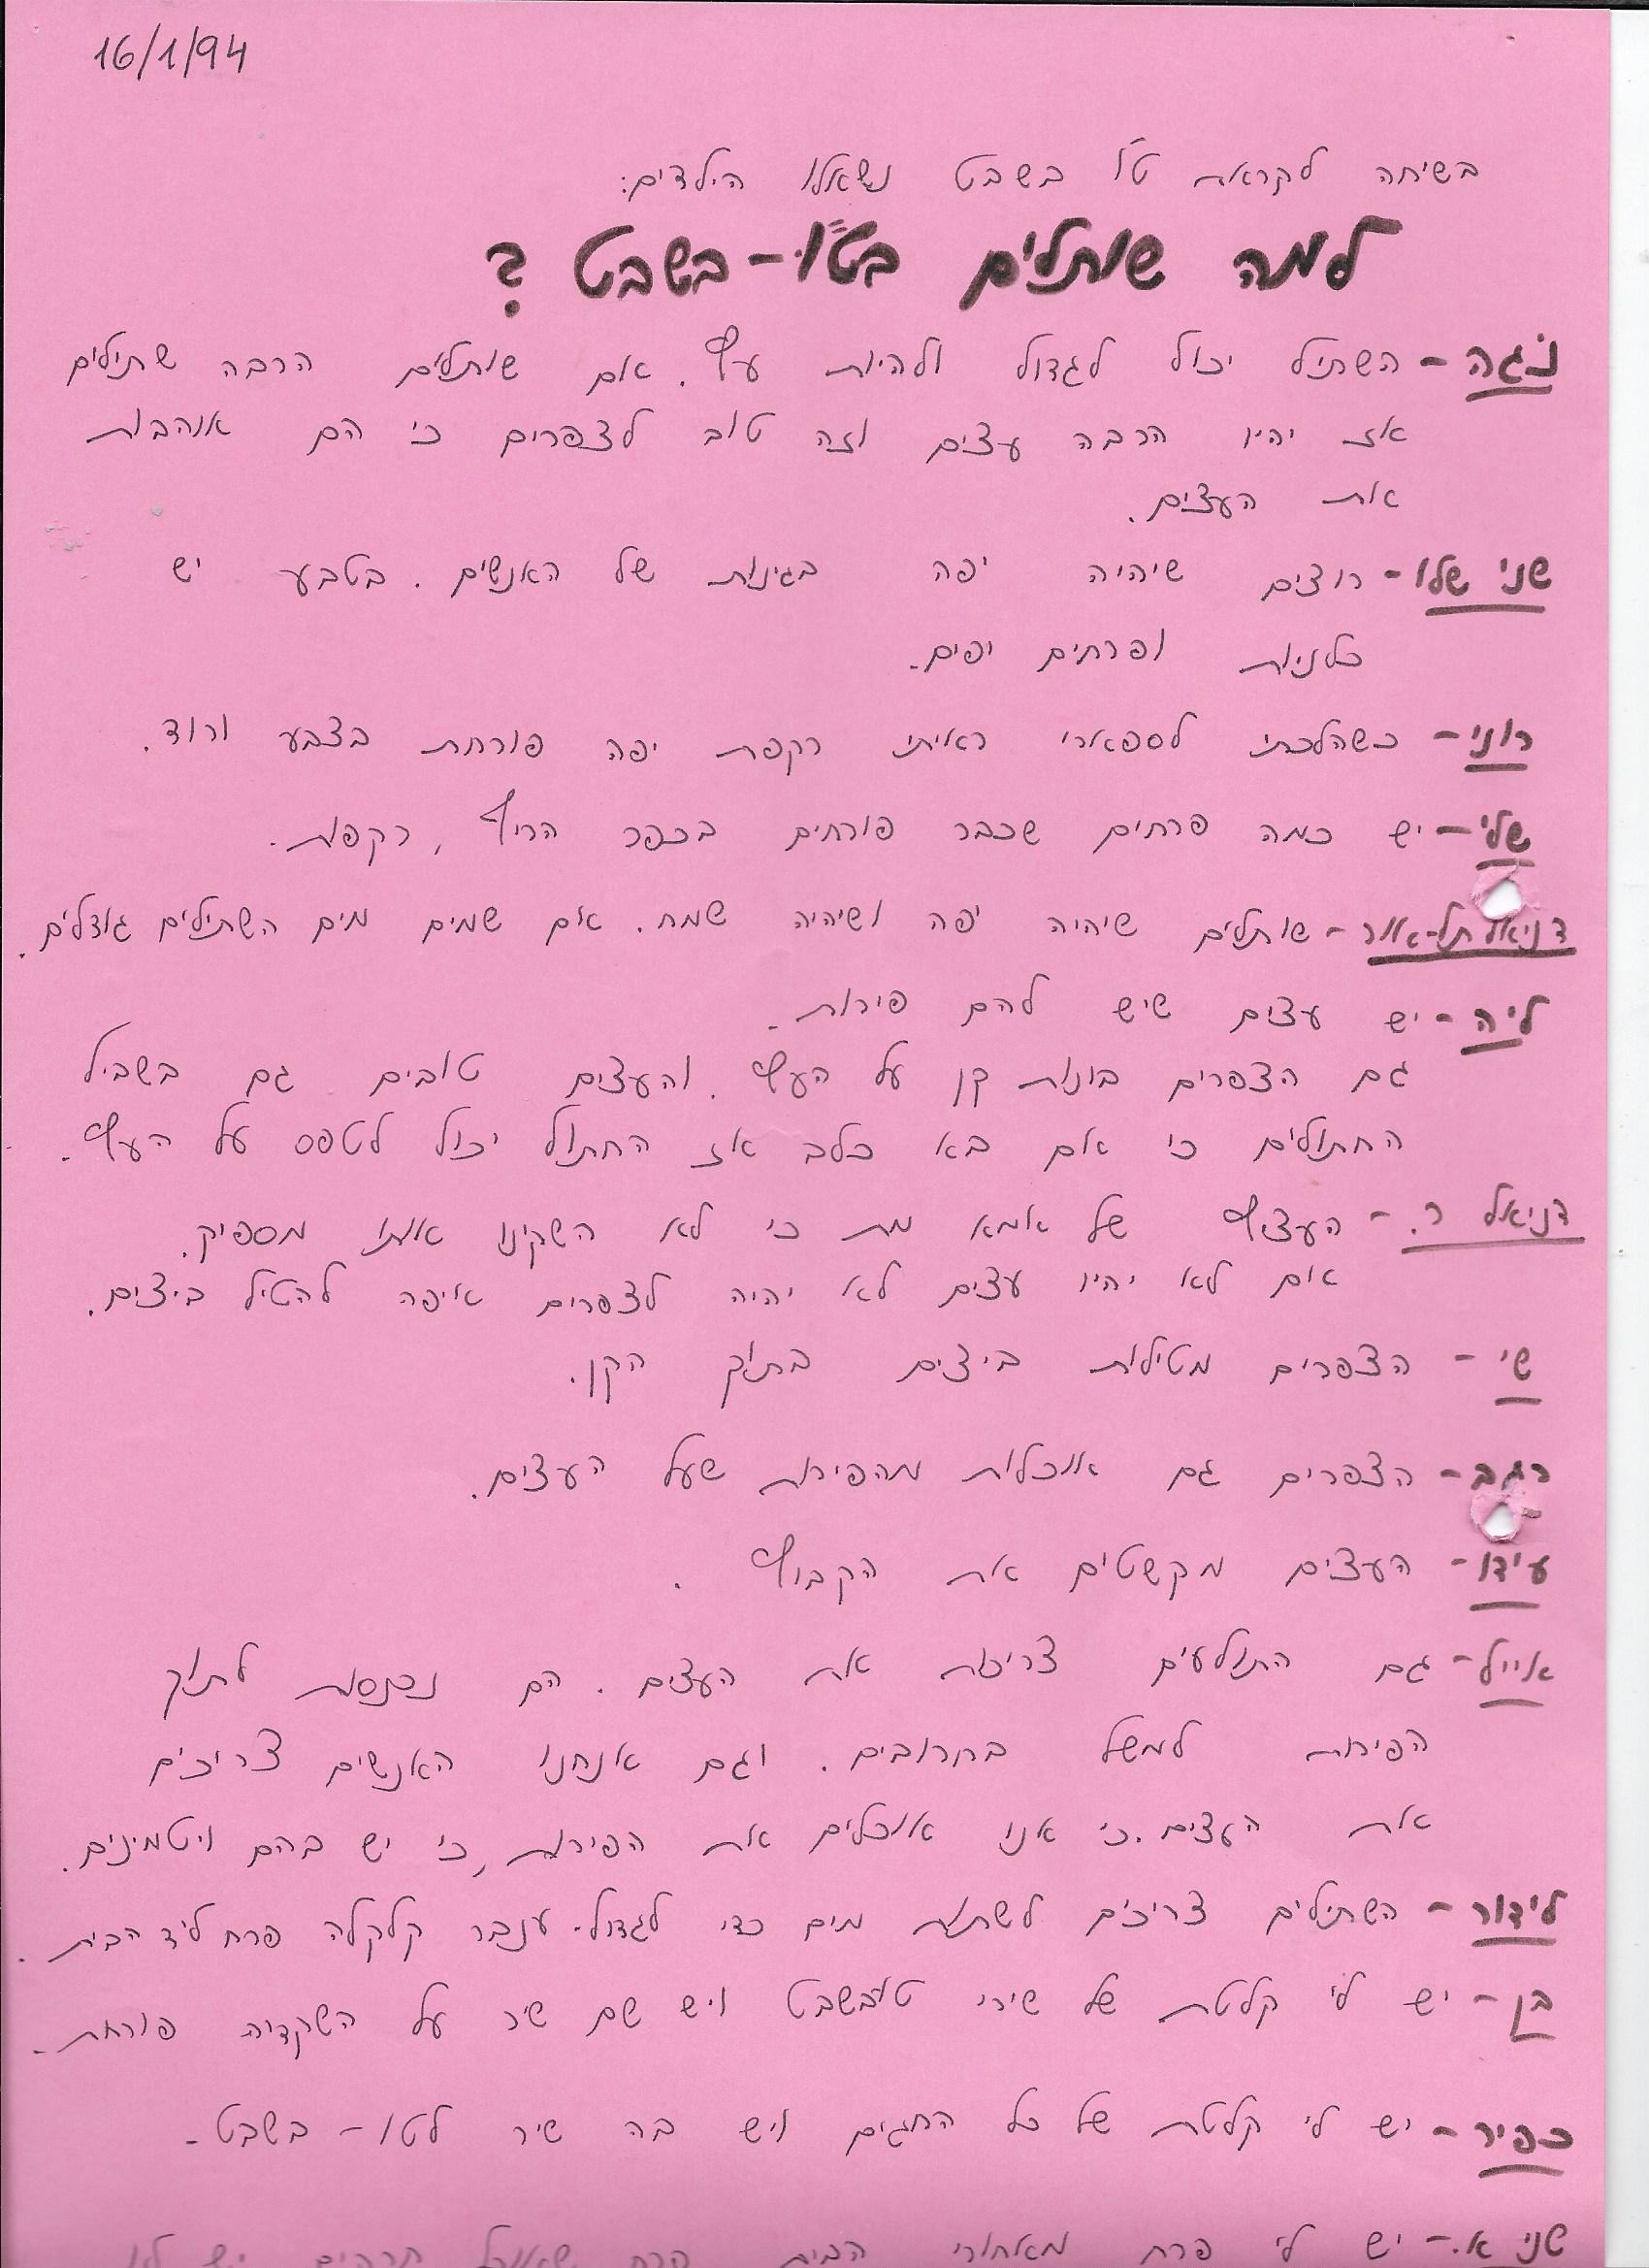 16/1/94
בשיחה לקראת ט"ו בשבט נשאלו הילדים:
למה שותלים בט"ו-בשבט ?
נגה - השתיל יכול לגדול ולהיות עץ. אם שותלים הרבה שתילים
אז יהיו הרבה עצים וזה טוב לצפרים כי הם אוהבות
את העצים.
שני שלו - רוצים שיהיה יפה בגינות של האנשים. בטבע יש
כלניות ופרחים יפים.
רוני - כשהלכתי לספארי ראיתי רקפת יפה פורחת בצבע ורוד.
שלי - יש כמה פרחים שכבר פורחים בכפר הריף, רקפות.
דניאל תל-אור - שותלים שיהיה יפה ושיהיה שמח. אם שמים מים השתילים גודלים.
ליה - יש עצים שיש להם פירות.
גם הצפרים בונות קן על העץ. והעצים טובים גם בשביל
החתולים כי אם בא כלב אז החתול יכול לטפס על העץ.
דניאל ר. - העציץ של אמא מת כי לא השקינו אותו מספיק.
אם לא יהיו עצים לא יהיה לצפרים איפה להטיל ביצים.
שי - הצפרים מטילות ביצים בתוך הקן.
רגב - הצפרים גם אוכלות מהפירות שעל העצים.
עידו - העצים מקשטים את הקבוץ.
אייל - גם התולעים צריכות את העצים. הם נכנסות לתוך
הפירות למשל בחרובים. וגם אנחנו האנשים צריכים
את העצים. כי אנו אוכלים את הפירות, כי יש בהם ויטמינים.
לידור - השתילים צריכים לשתות מים כדי לגדול. ענבר קלקלה פרח ליד הבית.
בן - יש לי קלטת של שירי ט"ובשבט ויש שם שיר על השקדיה פורחת.
כפיר - יש לי קלטת של כל החגים ויש בה שיר לטו-בשבט.
שני א. - יש לי פרח מאחורי הבית פרח שאוכל